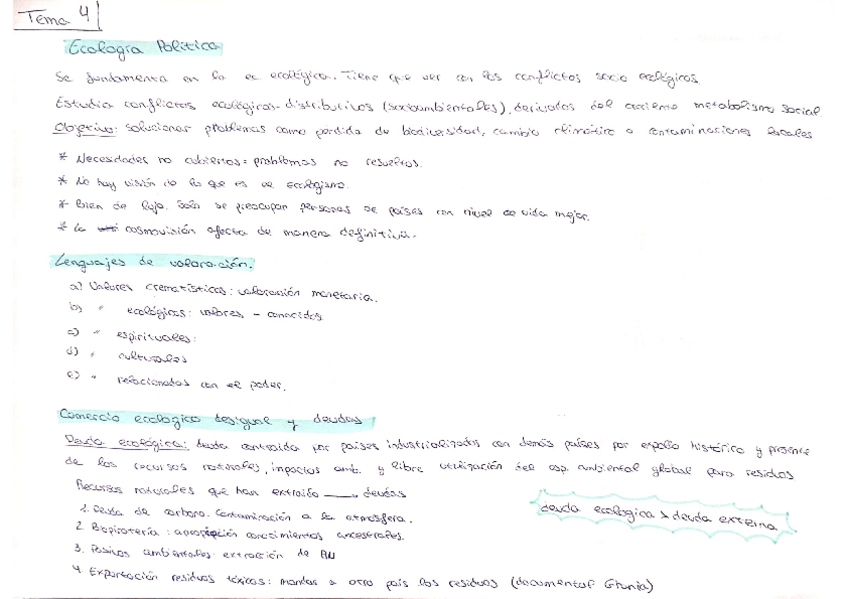 Tema 4
Ecología Política
Se fundamenta en la ec ecológica. Tiene que ver con los conflictos socio ecológicos.
Estudia conflictos ecológicos-distributivos (socioambientales), derivados del creciente metabolismo social
Objetivo: solucionar problemas como perdida de biodiversidad, cambio climático o contaminaciones locales
* Necesidades no cubiertas = problemas no resueltos.
* No hay visión de lo que es el ecologismo.
* Bien de lujo. Solo se preocupan personas de países con nivel de vida mejor.
* La cosmovisión afecta de manera definitiva.
Lenguajes de valoración.
a) Valores crematísticos: valoración monetaria.
b) " ecológicos: valores - conocidos
c) " espirituales:
d) " culturales
e) " relacionados con el poder.
Comercio ecologico desigual y deudas
Deuda ecológica: deuda contraida por países industrializados con demás países por expolio histórico y presente
de los recursos naturales, impactos amb. y libre utilización del esp. ambiental global para residuos
Recursos naturales que han extraído → deudas
1. Deuda de carbono. Contaminación a la atmosfera.
2. Biopiratería: apropiación conocimientos ancestrales.
3. Pasivos ambientales: extracción de RN
4. Exportación residuos tóxicos: mandas a otro país los residuos (documental Ghania)
deuda ecologica > deuda externa